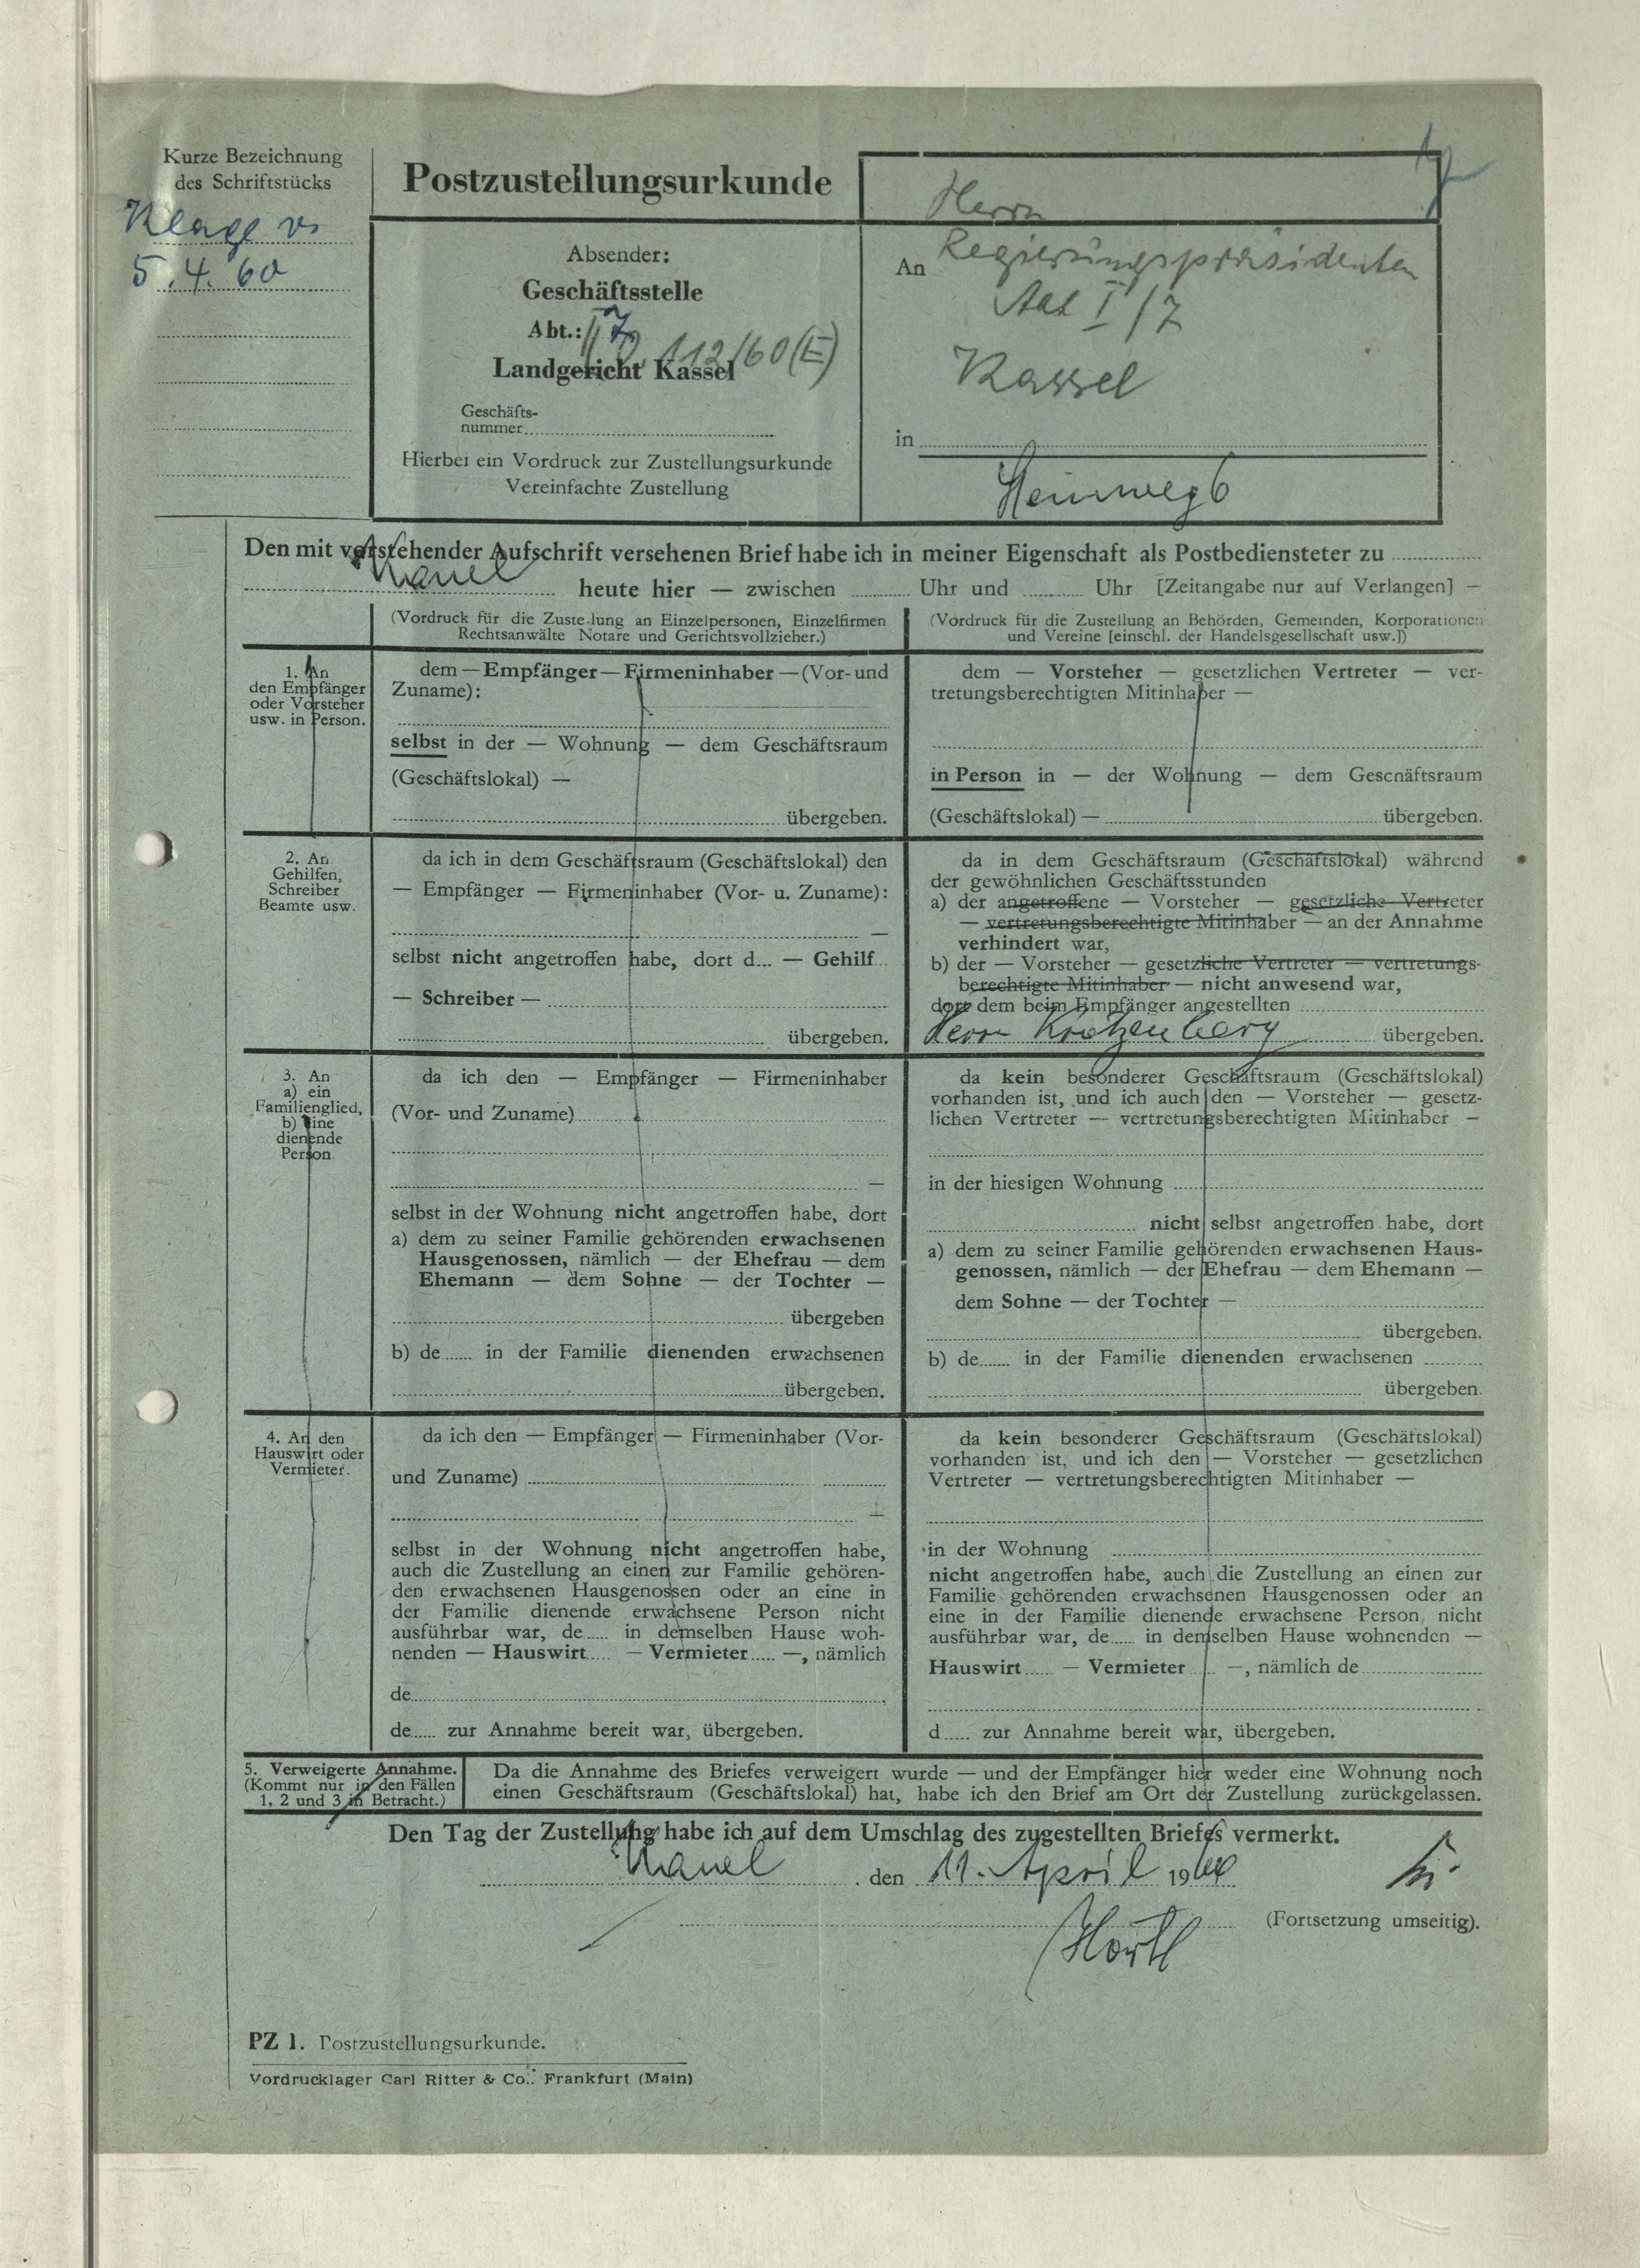 Kurze Bezeichnung
des Schriftstücks
Klage v.
5.4.60
Postzustellungsurkunde
Absender:
Geschäftsstelle
Abt.: 7
112/60 (E)
Landgericht Kassel
Geschäfts-
nummer
Hierbei ein Vordruck zur Zustellungsurkunde
Vereinfachte Zustellung
Herrn
An Regierungspräsidenten
Abt I/7
Kassel
in
Steinweg 6
Den mit vorstehender Aufschrift versehenen Brief habe ich in meiner Eigenschaft als Postbediensteter zu
Kassel heute hier — zwischen Uhr und Uhr [Zeitangabe nur auf Verlangen] —
(Vordruck für die Zustellung an Einzelpersonen, Einzelfirmen
Rechtsanwälte Notare und Gerichtsvollzieher.)
(Vordruck für die Zustellung an Behörden, Gemeinden, Korporationen
und Vereine [einschl. der Handelsgesellschaft usw.])
1. An
den Empfänger
oder Vorsteher
usw. in Person.
dem — Empfänger — Firmeninhaber — (Vor- und
Zuname):
selbst in der — Wohnung — dem Geschäftsraum
(Geschäftslokal) —
übergeben.
dem — Vorsteher — gesetzlichen Vertreter — ver-
tretungsberechtigten Mitinhaber —
in Person in — der Wohnung — dem Geschäftsraum
(Geschäftslokal) — übergeben.
2. An
Gehilfen,
Schreiber
Beamte usw.
da ich in dem Geschäftsraum (Geschäftslokal) den
— Empfänger — Firmeninhaber (Vor- u. Zuname):
—
selbst nicht angetroffen habe, dort d... — Gehilf...
— Schreiber —
übergeben.
da in dem Geschäftsraum (Geschäftslokal) während
der gewöhnlichen Geschäftsstunden
a) der angetroffene — Vorsteher — gesetzliche Vertreter
— vertretungsberechtigte Mitinhaber — an der Annahme
verhindert war,
b) der — Vorsteher — gesetzliche Vertreter — vertretungs-
berechtigte Mitinhaber — nicht anwesend war,
dort dem beim Empfänger angestellten
Herrn Krätzenberg übergeben.
3. An
a) ein
Familienglied,
b) eine
dienende
Person.
da ich den — Empfänger — Firmeninhaber
(Vor- und Zuname)
—
selbst in der Wohnung nicht angetroffen habe, dort
a) dem zu seiner Familie gehörenden erwachsenen
Hausgenossen, nämlich — der Ehefrau — dem
Ehemann — dem Sohne — der Tochter —
übergeben
b) de...... in der Familie dienenden erwachsenen
übergeben.
da kein besonderer Geschäftsraum (Geschäftslokal)
vorhanden ist, und ich auch den — Vorsteher — gesetz-
lichen Vertreter — vertretungsberechtigten Mitinhaber —
in der hiesigen Wohnung
nicht selbst angetroffen habe, dort
a) dem zu seiner Familie gehörenden erwachsenen Haus-
genossen, nämlich — der Ehefrau — dem Ehemann —
dem Sohne — der Tochter —
übergeben.
b) de...... in der Familie dienenden erwachsenen
übergeben.
4. An den
Hauswirt oder
Vermieter.
da ich den — Empfänger — Firmeninhaber (Vor-
und Zuname)
—
selbst in der Wohnung nicht angetroffen habe,
auch die Zustellung an einen zur Familie gehören-
den erwachsenen Hausgenossen oder an eine in
der Familie dienende erwachsene Person nicht
ausführbar war, de..... in demselben Hause woh-
nenden — Hauswirt..... — Vermieter..... —, nämlich
de
de..... zur Annahme bereit war, übergeben.
da kein besonderer Geschäftsraum (Geschäftslokal)
vorhanden ist, und ich den — Vorsteher — gesetzlichen
Vertreter — vertretungsberechtigten Mitinhaber —
in der Wohnung
nicht angetroffen habe, auch die Zustellung an einen zur
Familie gehörenden erwachsenen Hausgenossen oder an
eine in der Familie dienende erwachsene Person nicht
ausführbar war, de..... in demselben Hause wohnenden —
Hauswirt..... — Vermieter..... —, nämlich de
d..... zur Annahme bereit war, übergeben.
5. Verweigerte Annahme.
(Kommt nur in den Fällen
1, 2 und 3 in Betracht.)
Da die Annahme des Briefes verweigert wurde — und der Empfänger hier weder eine Wohnung noch
einen Geschäftsraum (Geschäftslokal) hat, habe ich den Brief am Ort der Zustellung zurückgelassen.
Den Tag der Zustellung habe ich auf dem Umschlag des zugestellten Briefes vermerkt.
Kassel, den 11. April 1960
(Fortsetzung umseitig).
PZ 1. Postzustellungsurkunde.
Vordrucklager Carl Ritter & Co.. Frankfurt (Main)